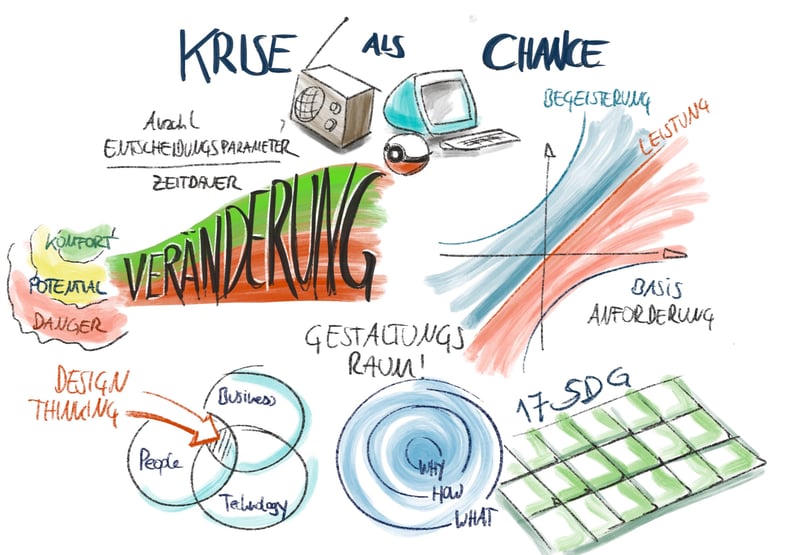 KRISE ALS CHANCE
Anzahl
ENTSCHEIDUNGSPARAMETER
ZEITDAUER
BEGEISTERUNG
LEISTUNG
BASIS
ANFORDERUNG
VERÄNDERUNG
KOMFORT
POTENTIAL
DANGER
GESTALTUNGS
RAUM!
DESIGN
THINKING
Business
People
Technology
WHY
HOW
WHAT
17 SDG